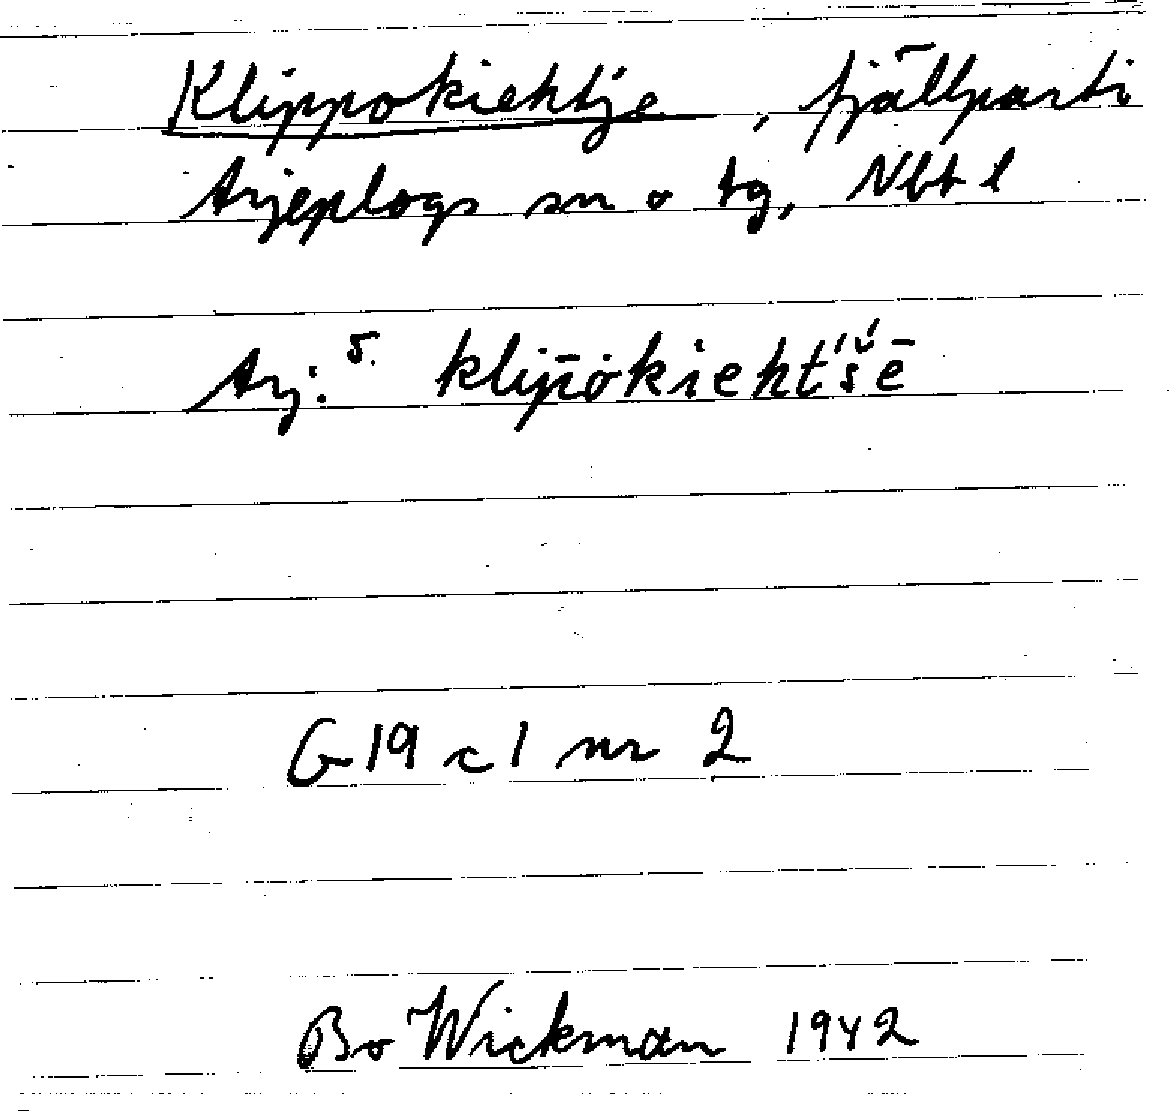 Klippokiehtje, fjällparti
Arjeplogs sn o tg, Nbt l
Arj. s. klip̄ȯkieht'š́ē
G 19 c 1 nr 2
Bo Wickman 1942